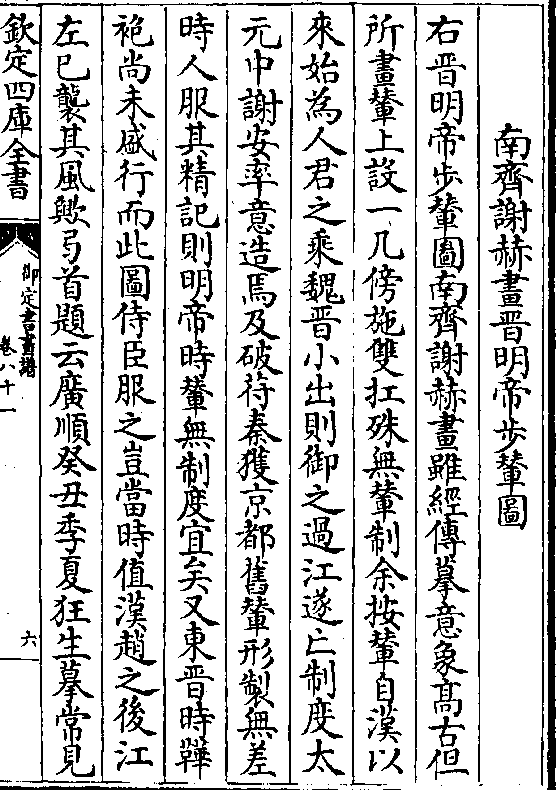 南齊謝赫畫晉明帝步輦圖
右晉明帝步輦圖南齊謝赫畫雖經傳摹意象髙古但
所畫輦上設一几傍施雙扛殊無輦制余按輦自漢以
來始為人君之乘魏晉小出則御之過江遂亡制度太
元中謝安率意造焉及破苻秦獲京都舊輦形製無差
時人服其精記則明帝時輦無制度宜矣又東晉時鞾
袍尚未盛行而此圖侍臣服之豈當時值漢趙之後江
左已襲其風歟弓首題云廣順癸丑季夏狂生摹常見
欽定四庫全書
御定書畫譜
卷八十一
六